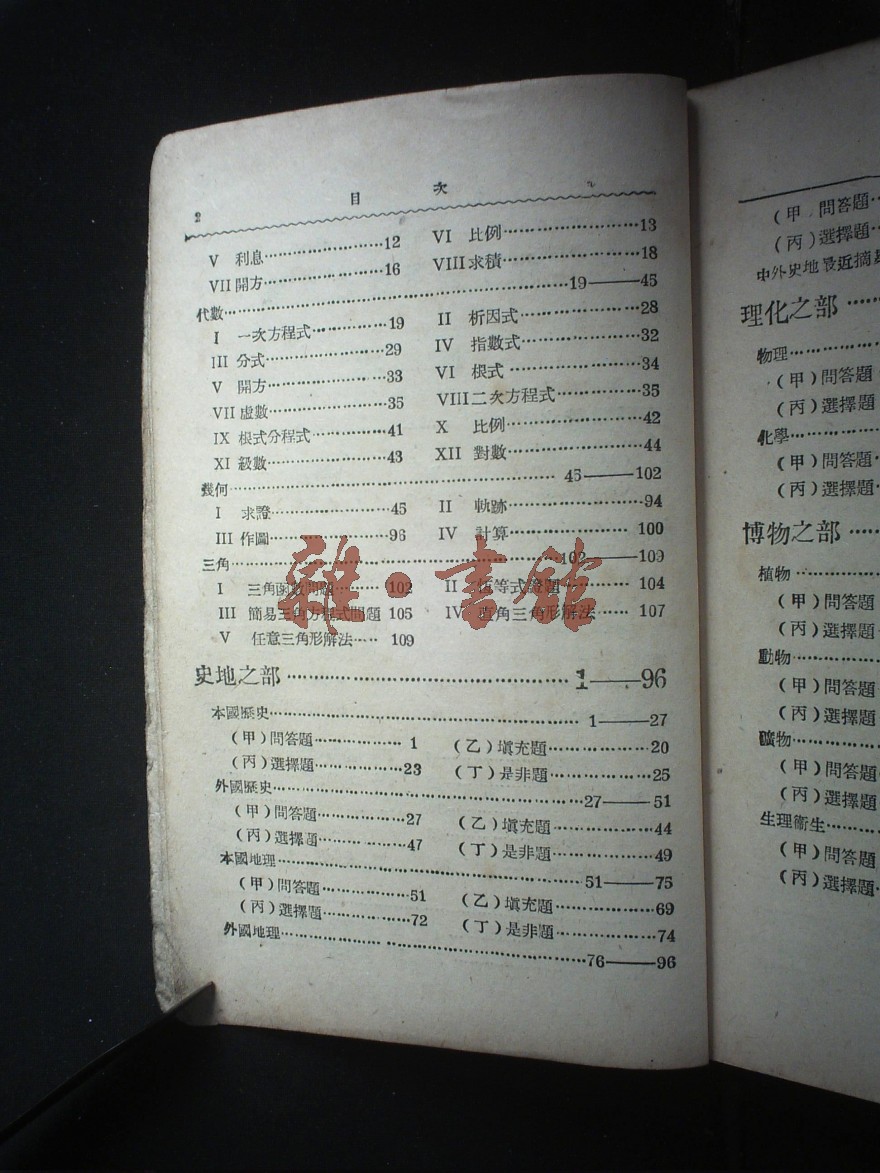 2 目 次
V 利息························12 VI 比例························13
VII 開方······················16 VIII 求積······················18
代數························19——45
I 一次方程式···············19 II 析因式······················28
III 分式························29 IV 指數式······················32
V 開方························33 VI 根式························34
VII 虛數······················35 VIII 二次方程式···············35
IX 根式分程式···············41 X 比例························42
XI 級數························43 XII 對數······················44
幾何························45——102
I 求證························45 II 軌跡························94
III 作圖························96 IV 計算························100
三角························102——109
I 三角函數問題············102 II 恆等式證題············104
III 簡易三角方程式問題 105 IV 直角三角形解法······107
V 任意三角形解法······109
史地之部························1——96
本國歷史························1——27
(甲)問答題··················1 (乙)塡充題··················20
(丙)選擇題··················23 (丁)是非題··················25
外國歷史························27——51
(甲)問答題··················27 (乙)塡充題··················44
(丙)選擇題··················47 (丁)是非題··················49
本國地理························51——75
(甲)問答題··················51 (乙)塡充題··················69
(丙)選擇題··················72 (丁)是非題··················74
外國地理························76——96
雜·書館
(甲)問答題··
(丙)選擇題··
中外史地最近摘
理化之部······
物理······
(甲)問答題
(丙)選擇題
化學······
(甲)問答題
(丙)選擇題
博物之部······
植物······
(甲)問答題
(丙)選擇題
動物······
(甲)問答題
(丙)選擇題
礦物······
(甲)問答題
(丙)選擇題
生理衞生······
(甲)問答題
(丙)選擇題